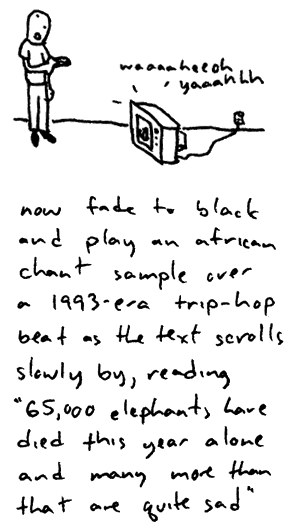 waaaaheeoh
yaaahhh
now fade to black
and play an african
chant sample over
a 1993-era trip-hop
beat as the text scrolls
slowly by, reading
"65,000 elephants have
died this year alone
and many more than
that are quite sad"